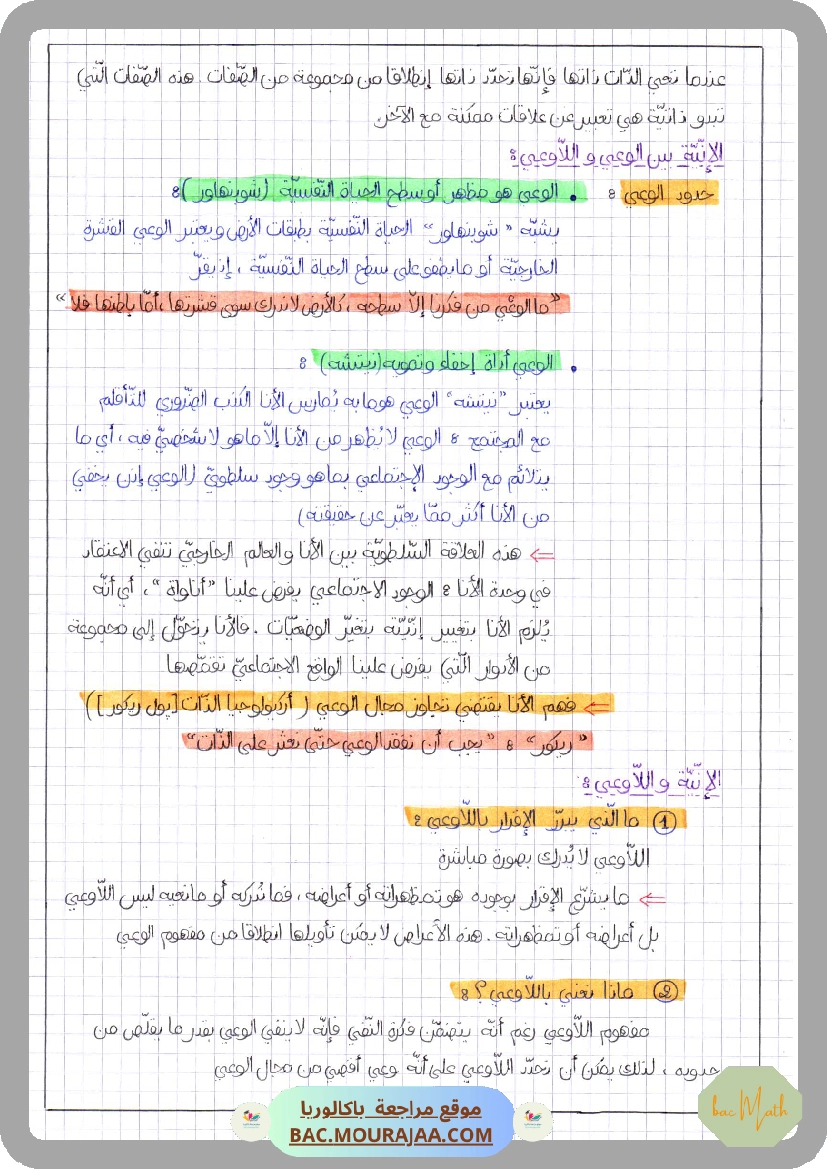 عندما تعي الذّات ذاتها فإنّها تحدّد ذاتها إنطلاقا من مجموعة من الصّفات . هذه الصّفات الّتي
تبدو ذاتيّة هي تعبير عن علاقات ممكنة مع الآخر.
الإنّيّة بين الوعي و اللّاوعي :
حدود الوعي : • الوعي هو مظهر أو سطح الحياة النّفسيّة (شوبنهاور) :
يشبّه " شوبنهاور" الحياة النّفسيّة بطبقات الأرض و يعتبر الوعي القشرة
الخارجيّة أو ما يطفو على سطح الحياة النّفسيّة ، إذ يقرّ
"ما الوعْي من فكرنا إلّا سطحه ، كالأرض لا ندرك سوى قشرتها ، أمّا باطنها فلا "
• الوعي أداة إخفاء وتمويه (نيتشه) :
يعتبر "نيتشه" الوعي هو ما به يُمارس الأنا الكذب الضّروري للتّأقلم
مع المجتمع : الوعي لا يُظهر من الأنا إلّا ما هو لا شخصيّ فيه ، أي ما
يتلائم مع الوجود الإجتماعي بما هو وجود سلطويّ (الوعي إذن يخفي
من الأنا أكثر ممّا يعبّر عن حقيقته)
⇐ هذه العلاقة السّلطويّة بين الأنا والعالم الخارجيّ تنفي الاعتقاد
في وحدة الأنا : الوجود الاجتماعي يفرض علينا "أناواة "، أي أنّه
يُلزم الأنا بتغيير إنّيّته بتغيّر الوضعيّات . فالأنا يتحوّل إلى مجموعة
من الأدوار الّتي يفرض علينا الواقع الاجتماعيّ تقمّصها
⇐ فهم الأنا يقتضي تجاوز مجال الوعي ( أركيولوجيا الذّات [بول ريكور])
"ريكور" : "يجب أن نفقد الوعي حتّى نعثر على الذّات"
الإنّيّة و اللّاوعي :
① ما الّذي يبرّر الإقرار باللّاوعي :
اللّاوعي لا يُدرك بصورة مباشرة
⇐ ما يشرّع الإقرار بوجوده هو تمظهراته أو أعراضه ، فما نُدركه أو ما نعيه ليس اللّاوعي
بل أعراضه أو تمظهراته . هذه الأعراض لا يمكن تأويلها انطلاقا من مفهوم الوعي
② ماذا نعني باللّاوعي ؟ :
مفهوم اللّاوعي رغم أنّه يتضمّن فكرة النّفي فإنّه لا ينفي الوعي بقدر ما يقلّص من
حدوده ، لذلك يمكن أن نحدّد اللّاوعي على أنّه وعي أقصي من مجال الوعي
bac Math
موقع مراجعة باكالوريا
BAC.MOURAJAA.COM